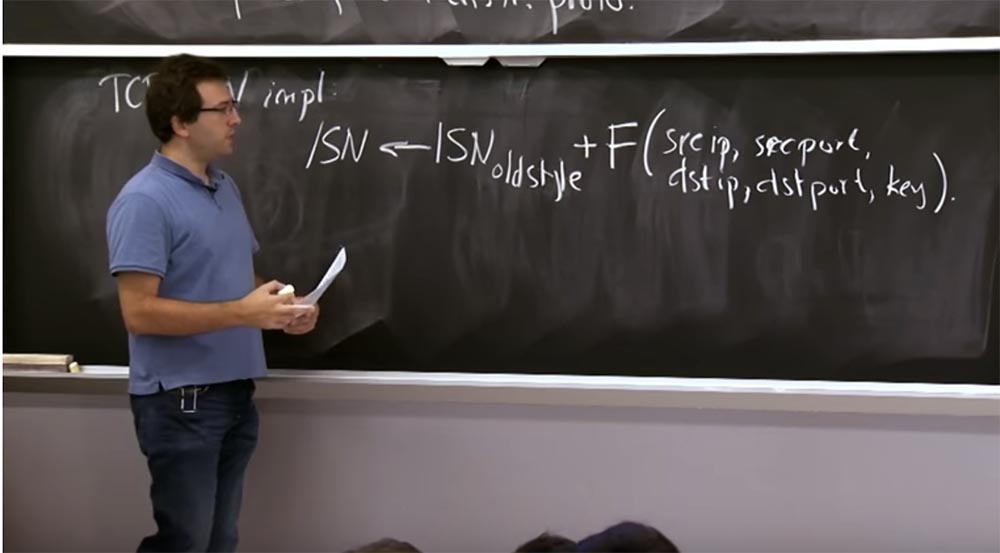 impl:
ISN ← ISN oldstyle + F(srcip, srcport,
dstip, dstport, key).